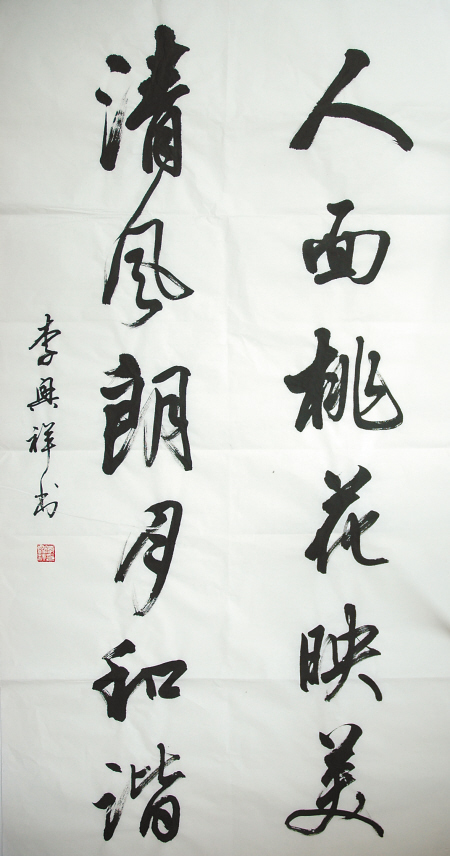 人面桃花映美
清风朗月和谐
李興祥书